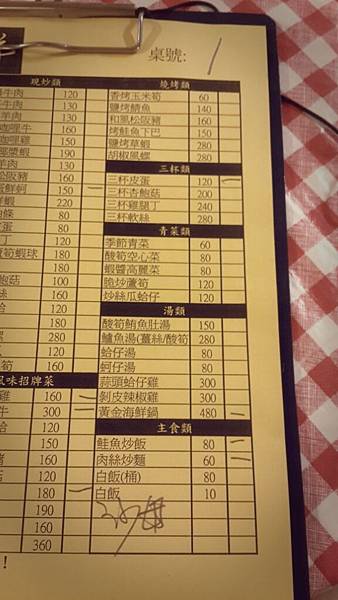 桌號:
現炒類
牛肉 120
牛肉 130
羊肉 130
咖哩牛 160
咖哩雞 150
190
羊肉 130
松阪豬 160
蛋鮮蚵 150
鮮蝦 220
條 80
蛋 80
丁 80
筍蝦球 180
80
鮑菇 100
絲 100
160
蛤 120
180
螺 280
80
筍 160
風味招牌菜
雞 160
牛 300
蛤 120
150
豬 160
120
180
190
160
360
燒烤類
香烤玉米筍 60
鹽烤鯖魚 140
和風松阪豬 160
烤鮭魚下巴 150
鹽烤草蝦 280
胡椒風螺 280
三杯類
三杯皮蛋 120
三杯杏鮑菇 200
三杯雞腿丁 240
三杯軟絲 280
青菜類
季節青菜 60
酸筍空心菜 80
蝦醬高麗菜 80
脆炒蘆筍 120
炒絲瓜蛤仔 120
湯類
酸筍鮪魚肚湯 150
鱸魚湯(薑絲/酸筍 280
蛤仔湯 80
蚵仔湯 80
蒜頭蛤仔雞 300
剝皮辣椒雞 300
黃金海鮮鍋 480
主食類
鮭魚炒飯 80
肉絲炒麵 60
白飯(桶) 80
白飯 10
!